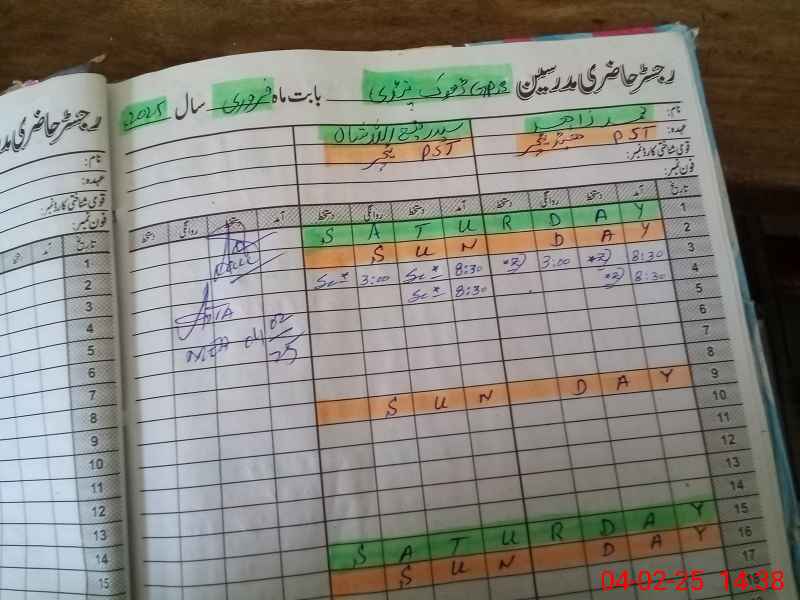 رجسٹر حاضری مدرسین GPS ڈھوک پنڈی بابت ماہ فروری سال 2025
نام: محمد زاہد
عہدہ: PST ہیڈ ٹیچر PST ٹیچر
قومی شناختی کارڈ نمبر:
فون نمبر:
تاریخ آمد دستخط روانگی دستخط آمد دستخط روانگی دستخط آمد دستخط روانگی دستخط
1 SATURDAY
2 SUN DAY
3 8:30 3:00 8:30 3:00
4 8:30 8:30
5
6
7
8
9 SUN DAY
10
11
12
13
14
15 SATURDAY
16 SUN DAY
17
18
MEA 04/02/25
رجسٹر حاضری
نام:
عہدہ:
قومی شناختی کارڈ نمبر:
فون نمبر:
تاریخ آمد
1
2
3
4
5
6
7
8
9
10
11
12
13
14
15
04-02-25 14:38